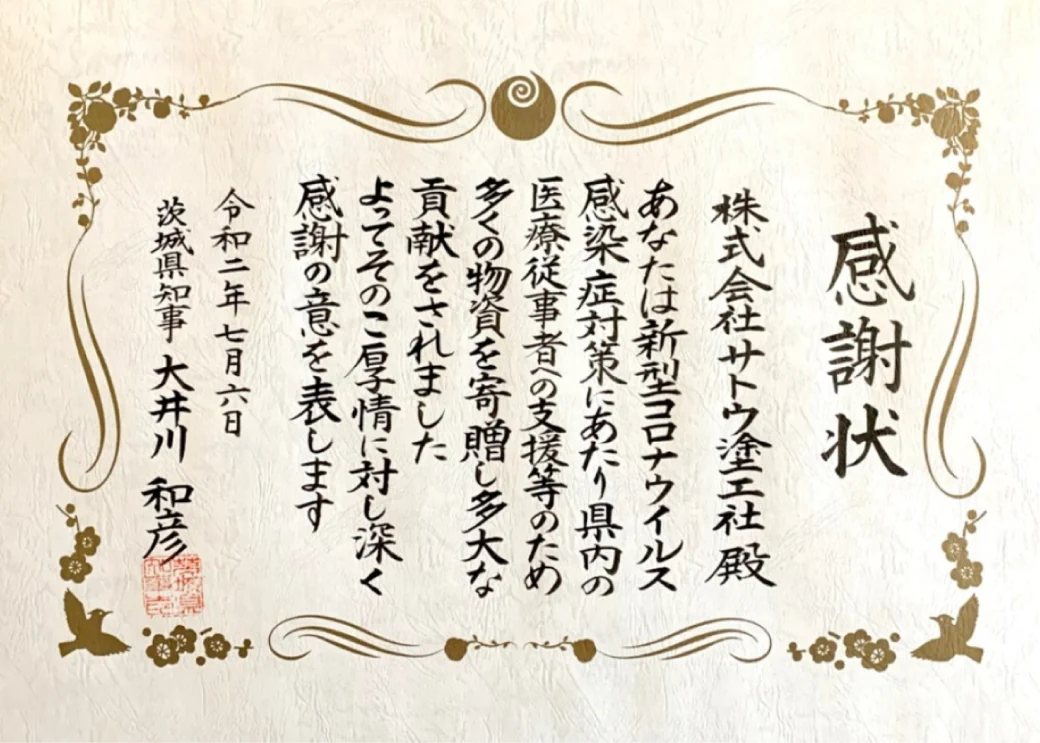 感謝状
株式会社サトウ塗工社 殿
あなたは新型コロナウイルス
感染症対策にあたり県内の
医療従事者への支援等のため
多くの物資を寄贈し多大な
貢献をされました
よってそのご厚情に対し深く
感謝の意を表します
令和二年七月六日
茨城県知事 大井川 和彦